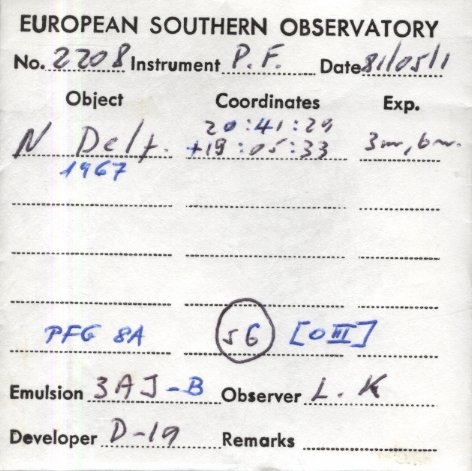 EUROPEAN SOUTHERN OBSERVATORY
No. 2208 Instrument P.F. Date 81/05/1
Object Coordinates Exp.
20:41:29
N Delf. +19:05:33 3m, 6m.
1967
PFG 8A 56 [OIII]
Emulsion 3AJ-B Observer L.K
Developer D-19 Remarks